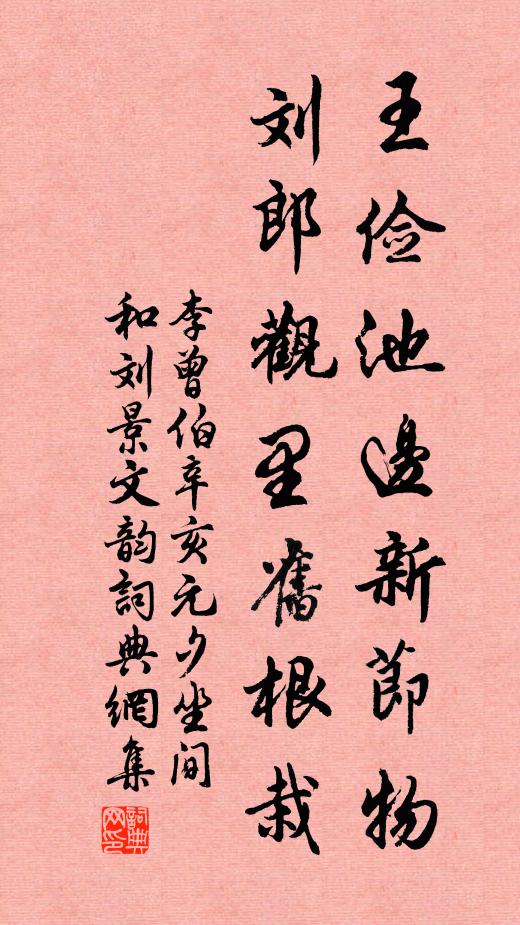 王俭池邊新節物
刘郎觀里舊根栽
李曾伯辛亥元夕坐间
和刘景文韵詞典網集
詞典网印